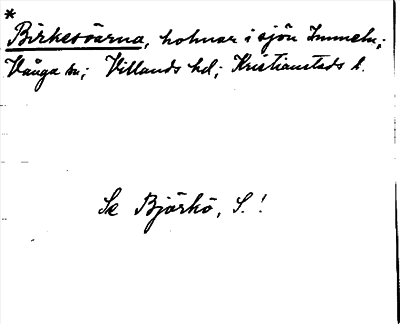 *
Birkesöarna, holmar i sjön Immeln;
Vånga sn; Villands hd; Kristianstads l.
Se Björkö, S.!